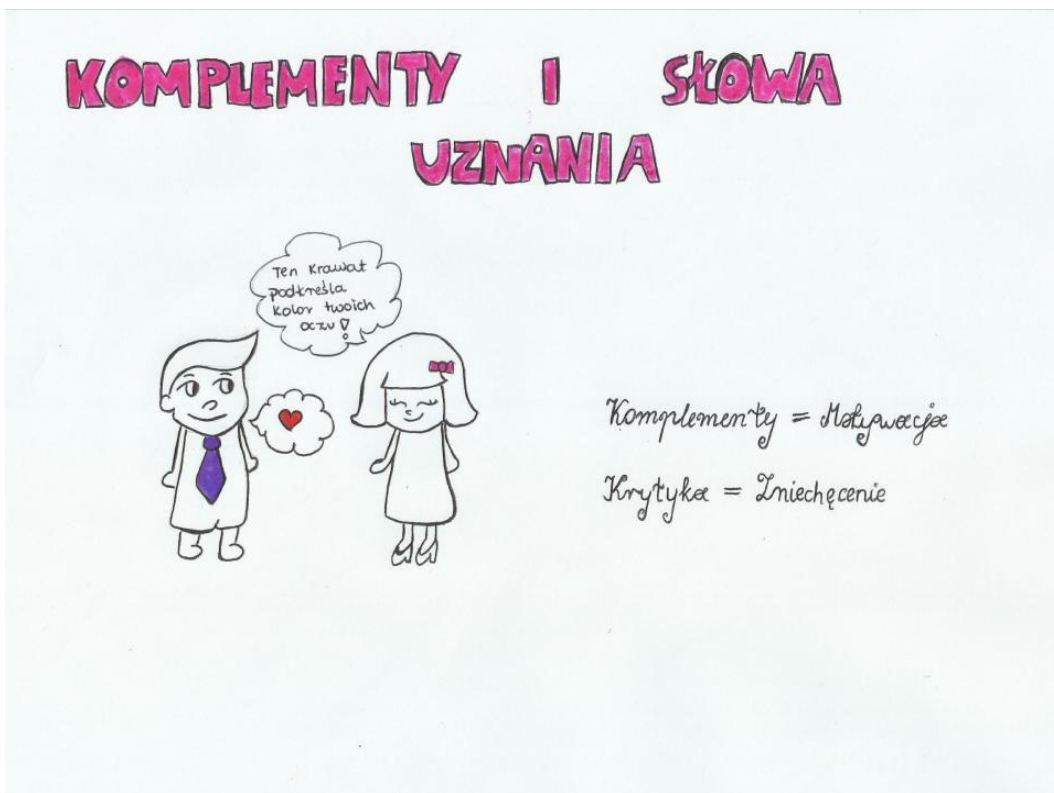 KOMPLEMENTY I SŁOWA
UZNANIA
Ten krawat
podkreśla
kolor twoich
oczu!
Komplementy = Motywacja
Krytyka = Zniechęcenie